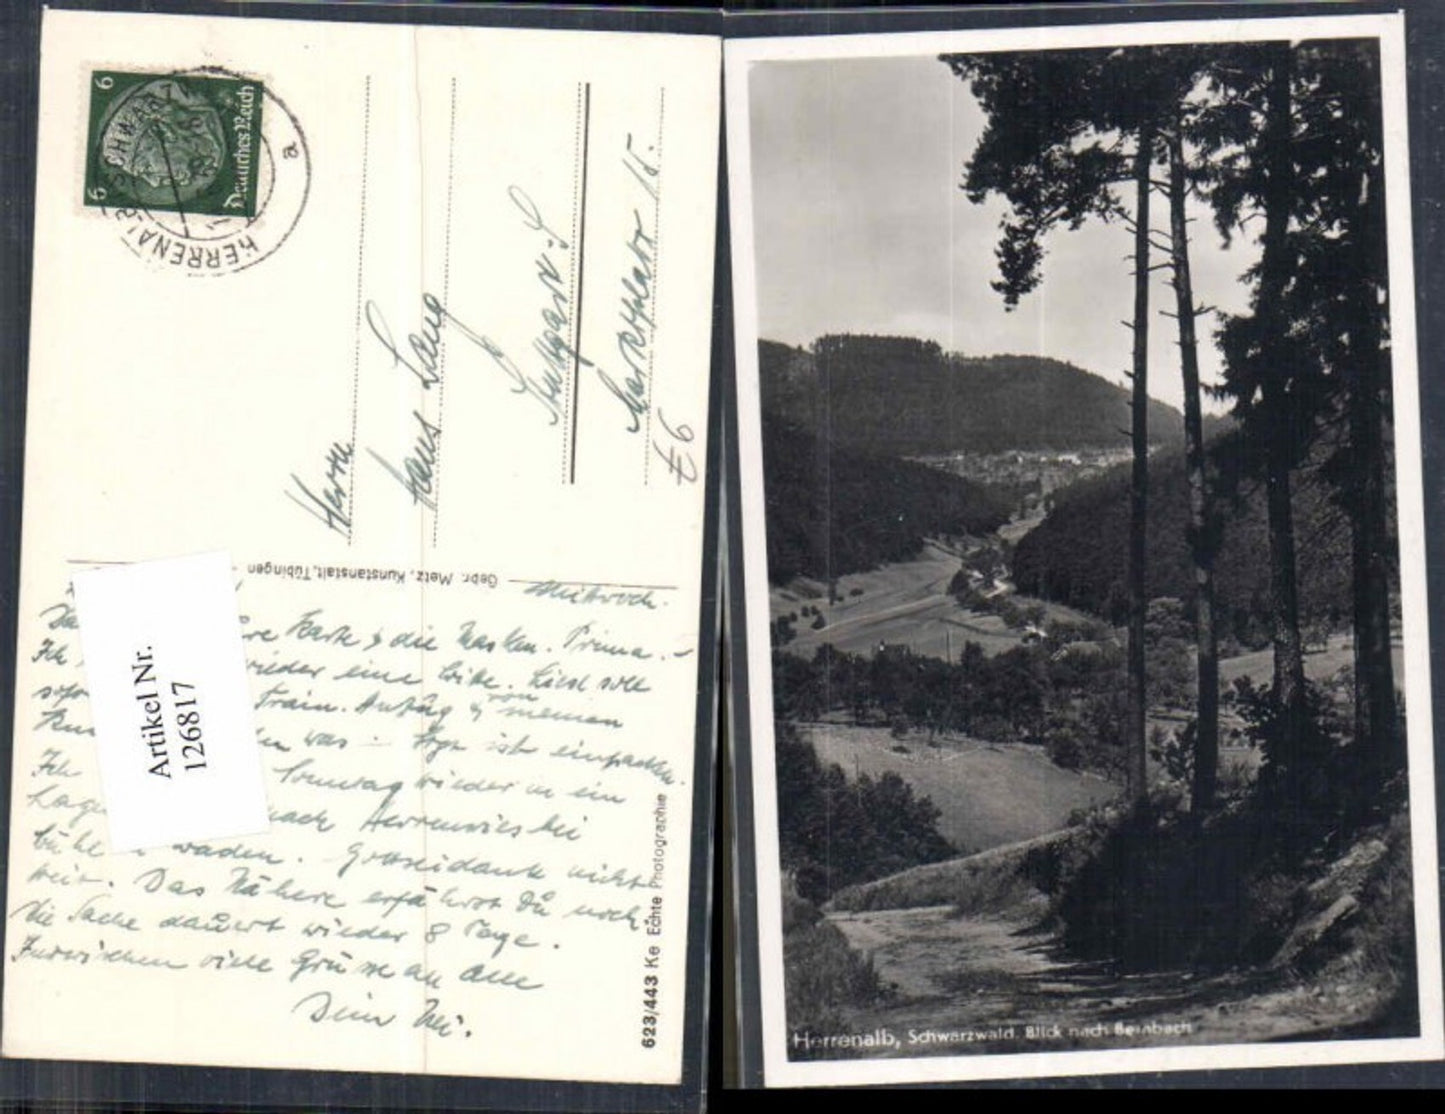 6
6
Deutsches Reich
HERRENAL
SCHWARZW
a
Herrn
Hans Lang
Stuttgart-S
Marktplatz 15.
E 6
Gebr. Metz, Kunstanstalt, Tübingen
Mittwoch.
Karte & die Masken. Prima.
Ich wieder eine Bitte. Liesl soll
Train. Anzug & von meinen
was ist einpacken.
Ich Sonntag wieder in ein
Lager nach Herrenwies bei
Bühl baden. Gottseidank nicht
weit. Das Nähere erfährst Du noch.
Die Sache dauert wieder 8 Tage.
Inzwischen viele Grüsse an alle
Dein
623/443 Ke Echte Photographie
Artikel Nr.
126817
Herrenalb, Schwarzwald. Blick nach Bernbach